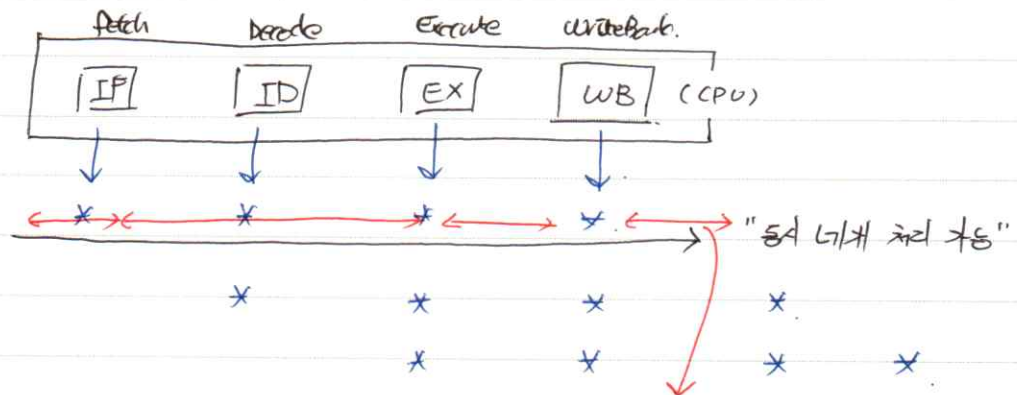 fetch Decode Execute WriteBack.
IF ID EX WB (CPU)
"동시 네개 처리 가능"